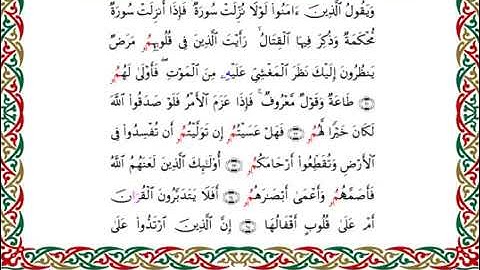 وَيَقُولُ ٱلَّذِينَ ءَامَنُوا۟ لَوْلَا نُزِّلَتْ سُورَةٌ فَإِذَآ أُنزِلَتْ سُورَةٌ
مُّحْكَمَةٌ وَذُكِرَ فِيهَا ٱلْقِتَالُ رَأَيْتَ ٱلَّذِينَ فِى قُلُوبِهِمُۥ مَرَضٌ
يَنظُرُونَ إِلَيْكَ نَظَرَ ٱلْمَغْشِىِّ عَلَيْهِۦ مِنَ ٱلْمَوْتِ فَأَوْلَىٰ لَهُمُۥ
طَاعَةٌ وَقَوْلٌ مَّعْرُوفٌ فَإِذَا عَزَمَ ٱلْأَمْرُ فَلَوْ صَدَقُوا۟ ٱللَّهَ
لَكَانَ خَيْرًا لَّهُمُۥ فَهَلْ عَسَيْتُمُۥ إِن تَوَلَّيْتُمُۥ أَن تُفْسِدُوا۟ فِى
ٱلْأَرْضِ وَتُقَطِّعُوٓا۟ أَرْحَامَكُمُۥ أُو۟لَٰٓئِكَ ٱلَّذِينَ لَعَنَهُمُ ٱللَّهُ
فَأَصَمَّهُمُۥ وَأَعْمَىٰٓ أَبْصَٰرَهُمُۥ أَفَلَا يَتَدَبَّرُونَ ٱلْقُرَانَ
أَمْ عَلَىٰ قُلُوبٍ أَقْفَالُهَآ إِنَّ ٱلَّذِينَ ٱرْتَدُّوا۟ عَلَىٰٓ